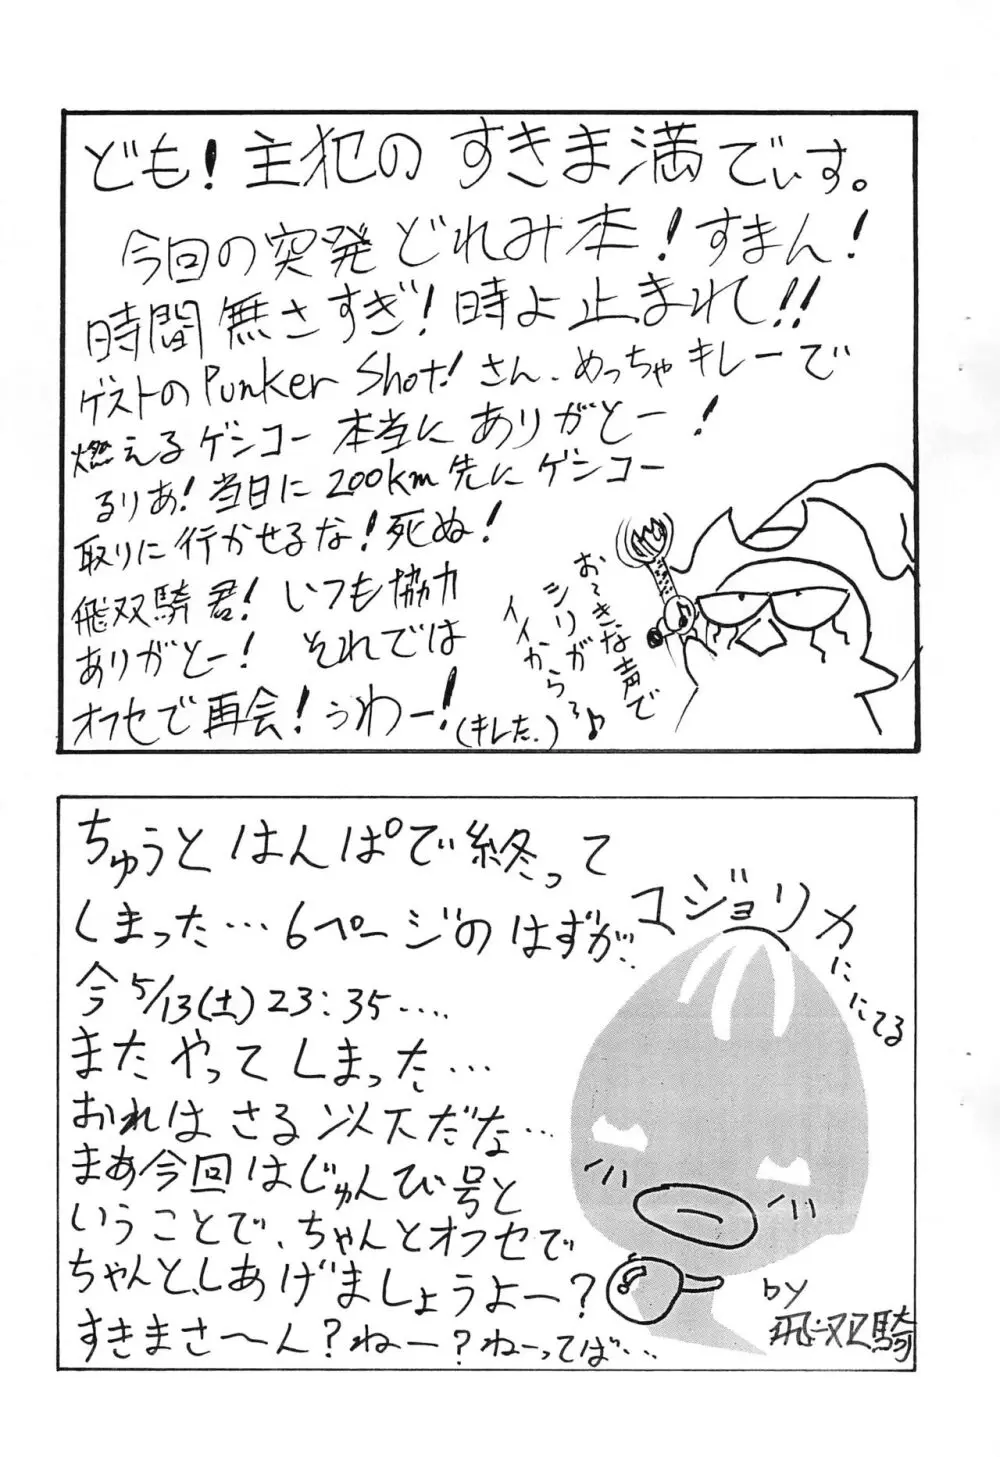 ども！主犯の すきま満でいす。
今回の突発どれみ本！すまん！
時間無さすぎ！時よ止まれ!!
ゲストのPunker Shot！さん、めっちゃキレーで
燃えるゲンコー本当にありがとー！
るりあ！当日に200km先にゲンコー
取りに行かせるな！死ぬ！
飛双騎君！いつも協力
ありがとー！それでは
オフセで再会！うわー！(キレた。)
おっきな声で
シリガ
イイからぁ♪
ちゅうとはんぱで終って
しまった…6ページのはずが…
今5/13(土)23:35….
またやってしまった…
おれはさる以下だな…
まあ今回はじゅんび号と
いうことで、ちゃんとオフセで
ちゃんと、しあげましょうよー？
すきまさ〜ん？ねー？ねーってば…
マジョリカ
ににてる
by
飛双騎